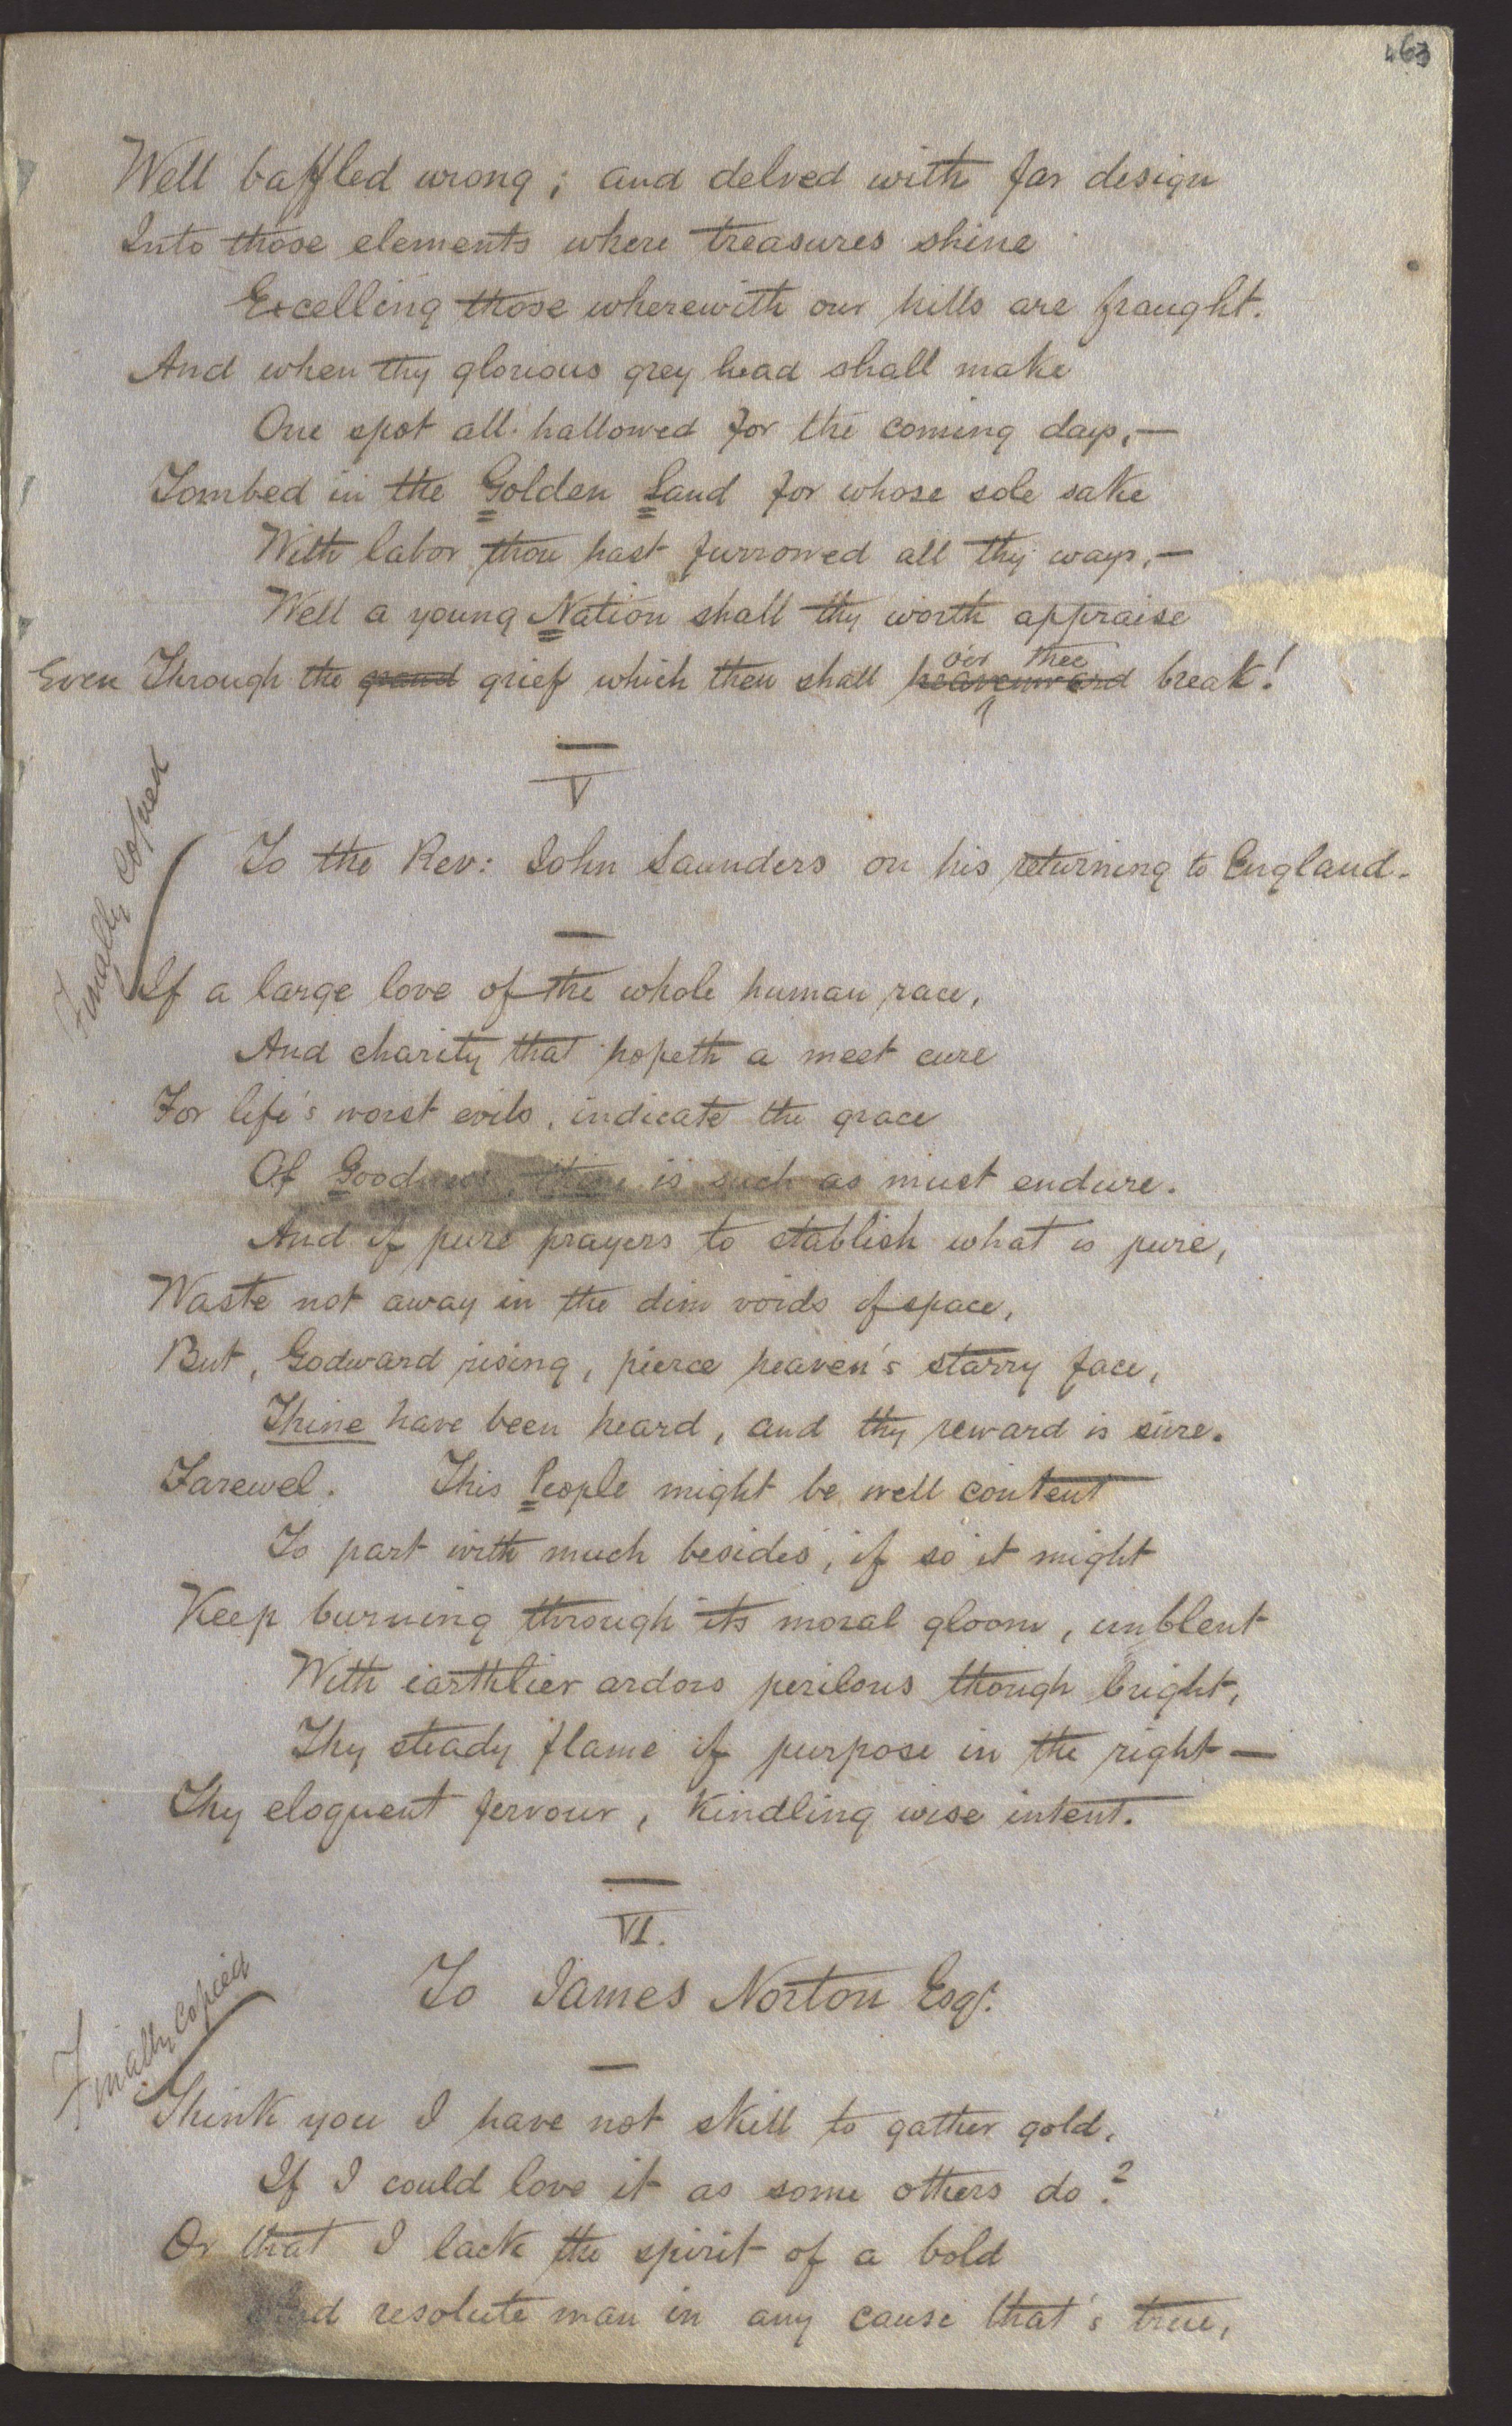 463
Well baffled wrong; and delved with far design
Into those elements where treasures shine
Excelling those wherewith our hills are fraught.
And when thy glorious grey head shall make
One spot all-hallowed for the coming days,—
Tombed in the Golden Land for whose sole sake
With labor thou hast furrowed all thy ways,—
Well a young Nation shall thy worth appraise
o'er thee
Even Through the grand grief which then shall heavenward break!
V
Finally Copied
To the Rev: John Saunders on his returning to England.
If a large love of the whole human race,
And charity that hopeth a meet cure
For life's worst evils, indicate the grace
Of Goodness, thine is such as must endure.
And if pure prayers to stablish what is pure,
Waste not away in the dim voids of space,
But, Godward rising, pierce heaven's starry face,
Thine have been heard, and thy reward is sure.
Farewel. This People might be well content
To part with much besides, if so it might
Keep burning through its moral gloom, unblent
With earthlier ardors perilous though bright,
Thy steady flame of purpose in the right—
Thy eloquent fervour, kindling wise intent.
VI.
To James Norton Esqr.
Finally Copied
Think you I have not skill to gather gold,
If I could love it as some others do?
Or that I lack the spirit of a bold
And resolute man in any cause that's true,